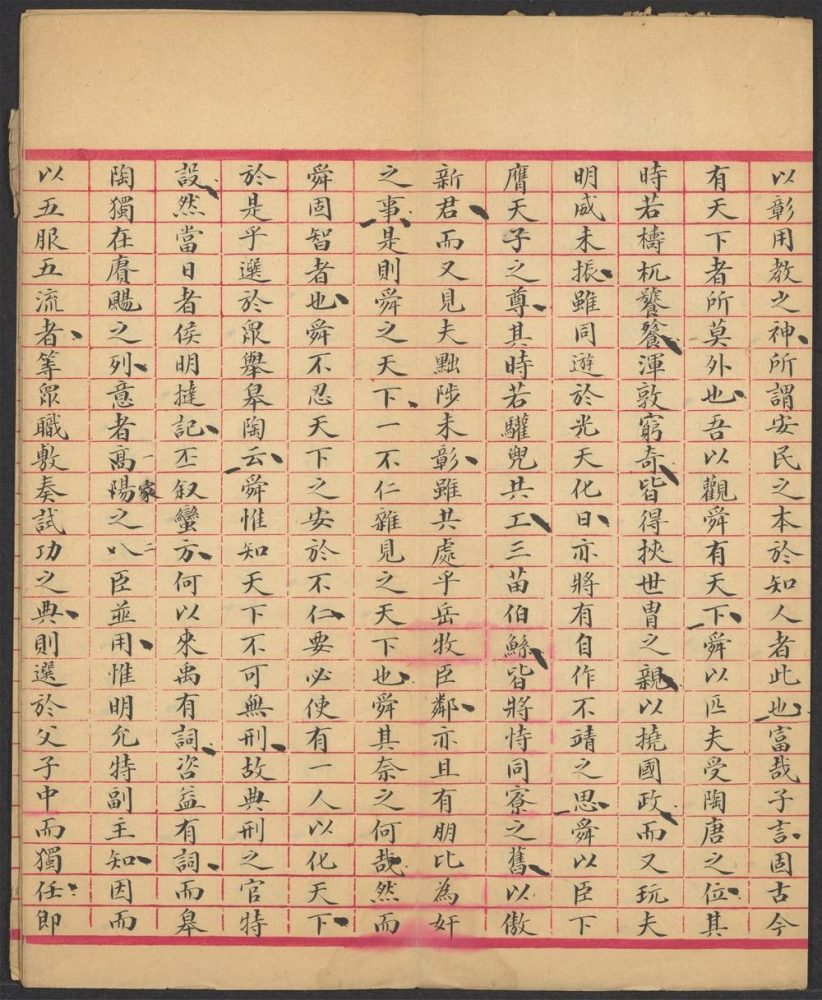 以彰用教之神所謂安民之本於知人者此也富哉子言固古今
有天下者所莫外也吾以觀舜有天下舜以匹夫受陶唐之位其
時若檮杌饕餮渾敦窮奇皆得挾世胄之親以撓國政而又玩夫
明威未振雖同遊於光天化日亦將有自作不靖之思舜以臣下
膺天子之尊其時若驩兜共工三苗伯鯀皆將恃同寮之舊以傲
新君而又見夫黜陟未彰雖共處乎岳牧臣鄰亦且有朋比為奸
之事是則舜之天下一不仁雜見之天下也舜其奈之何哉然而
舜固智者也舜不忍天下之安於不仁要必使有一人以化天下
於是乎選於眾舉皋陶云舜惟知天下不可無刑故典刑之官特
設然當日者侯明撻記丕叙蠻方何以來禹有詞咨益有詞而皋
陶獨在賡颺之列意者高陽家之八臣並用惟明允特副主知因而
以五服五流者等眾職敷奏試功之典則選於父子中而獨任即